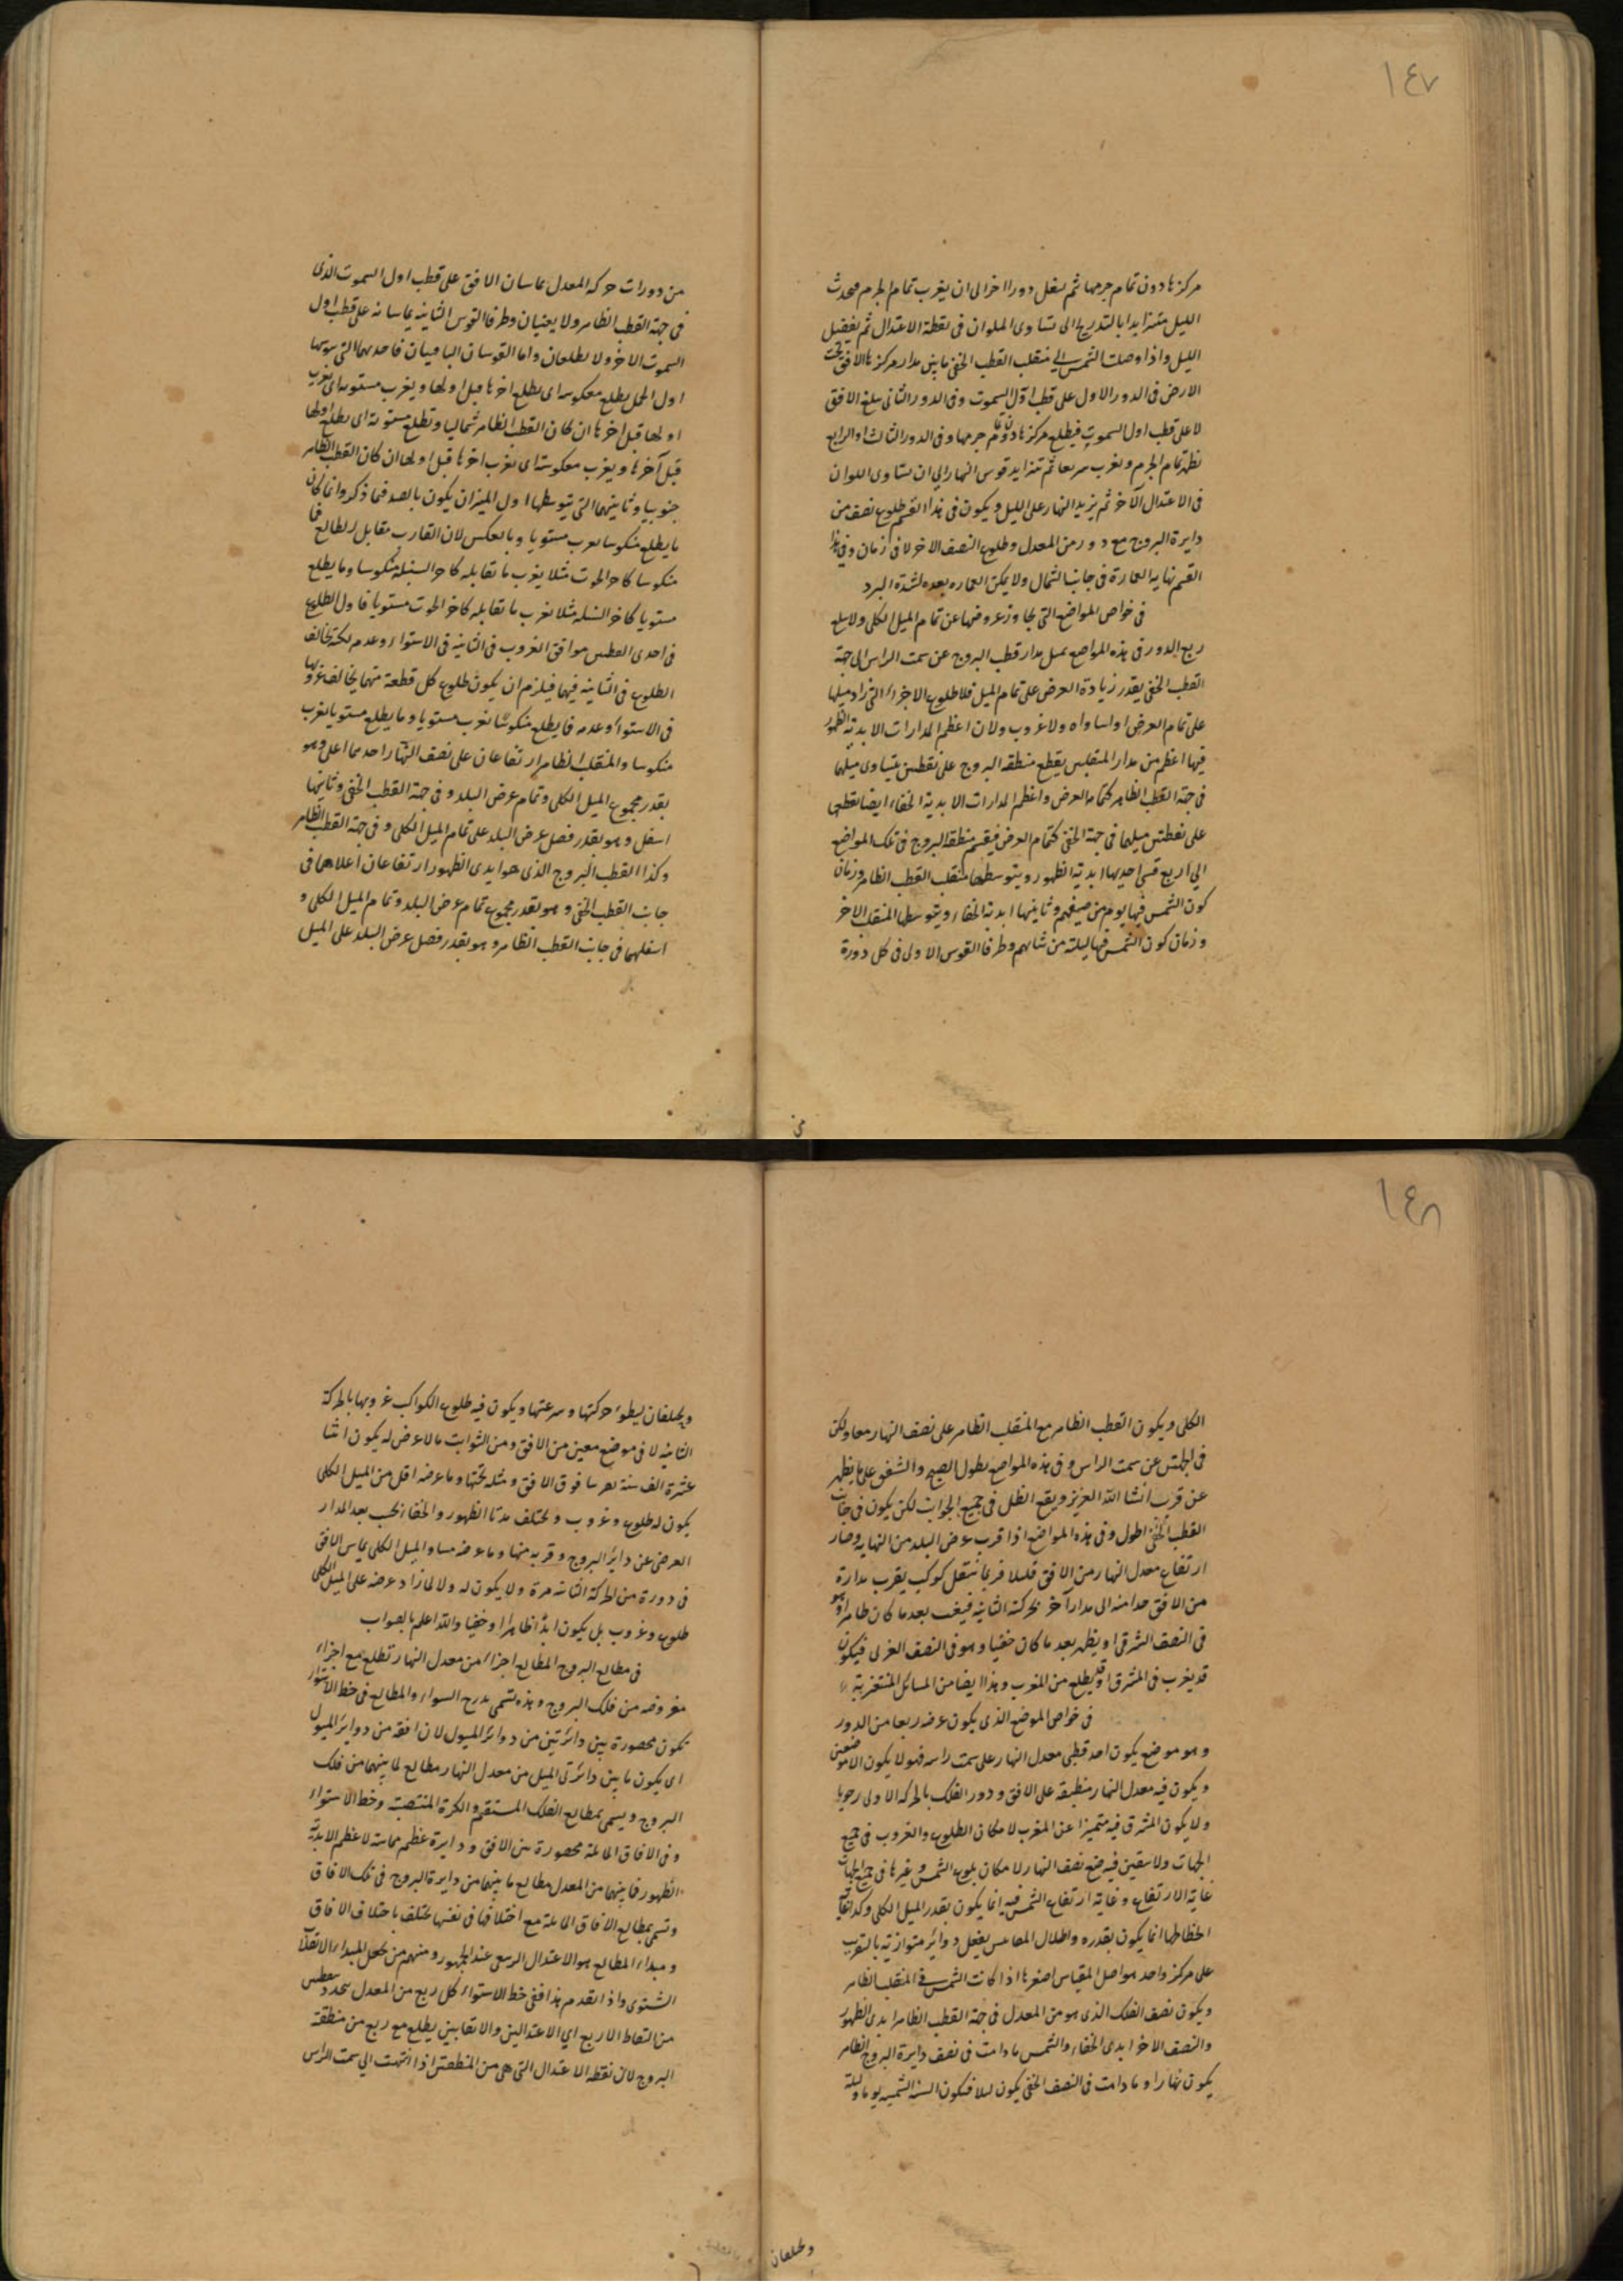 ١٤٧
مركزها دون تمام جرمها ثم ينتقل دورا اخر الى ان يغرب تمام الجرم فيحدث
الليل متزايدا بالتدريج الى تساوى الملوان فى نقطة الاعتدال ثم يفضل
الليل واذا وصلت الشمس الى منقلب القطب الخفى ماس مدار مركزها الافق تحت
الارض فى الدور الاول على قطب اول السموت وفى الدور الثانى يبلغ الافق
لا على قطب اول السموت فيطلع مركزها دون تمام جرمها وفى الدور الثالث او الرابع
يظهر تمام الجرم ويغرب سريعا ثم تتزايد قوس النهار الى ان يتساوى الملوان
فى الاعتدال الآخر ثم يزيد النهار على الليل ويكون فى هذا القسم طلوع نصف من
دايرة البروج مع دور من المعدل وطلوع النصف الاخر لا فى زمان وفى هذا
القسم نهاية العمارة فى جانب الشمال ولا يمكن العماره بعده لشدة البرد
فى خواص المواضع التى جاوز عروضها عن تمام الميل الكلى ولا يبلغ
ربع الدور فى هذه المواضع يميل مدار قطب البروج عن سمت الراس الى جهة
القطب الخفى بقدر زيادة العرض على تمام الميل فلا طلوع الاجزاء التى زاد ميلها
على تمام العرض او ساواه ولا غروب ولان اعظم المدارات الابدية الظهور
فيها اعظم من مدار المنقلبين يقطع منطقة البروج على نقطتين يتساوى ميلهما
فى جهة القطب الظاهر كتمام العرض واعظم المدارات الابدية الخفاء ايضا يقطعها
على نقطتين ميلهما فى جهة الخفى كتمام العرض فيقسم منطقة البروج فى تلك المواضع
الى اربع قسى احديها ابدية الظهور ويتوسطها منقلب القطب الظاهر وزمان
كون الشمس فيها يوم من صيفهم وثانيتها ابدية الخفاء ويتوسطها المنقلب الاخر
وزمان كون الشمس فيها ليلة من شتائهم وطرفا القوس الاولى فى كل دورة
من
من دورات حركة المعدل يماسان الافق على قطب اول السموت الذى
فى جهة القطب الظاهر ولا يغيبان وطرفا القوس الثانية يماسانه على قطب اول
السموت الاخر ولا يطلعان واما القوسان الباقيتان فاحديهما التى يتوسطها
اول الحمل يطلع معكوسة اى يطلع اخرها قبل اولها ويغرب مستوية اى يغرب
اولها قبل اخرها ان كان القطب الظاهر شماليا وتطلع مستوية اى يطلع اولها
قبل آخرها ويغرب معكوسة اى يغرب اخرها قبل اولها ان كان القطب الظاهر
جنوبيا وثانيتهما التى يتوسطها اول الميزان يكون بالضد فيما ذكر وانما كان
ما يطلع منكوسا يغرب مستويا وبالعكس لان الغارب مقابل للطالع فما
منكوسا كاخر الحوت مثلا يغرب ما تقابله كاخر السنبلة منكوسا وما يطلع
مستويا كاخر السنبلة مثلا يغرب ما تقابله كاخر الحوت مستويا فاول الطلوع
فى احدى القطعتين موافق الغروب فى الثانية فى الاستواء وعدمه لكنه يخالف
الطلوع فى الثانية فيها فيلزم ان يكون طلوع كل قطعة منهما يخالف غروبها
فى الاستواء وعدمه فما يطلع منكوسا يغرب مستويا وما يطلع مستويا يغرب
منكوسا وللمنقلب الظاهر ارتفاعان على نصف النهار احدهما اعلى وهو
بقدر مجموع الميل الكلى وتمام عرض البلد وفى جهة القطب الخفى وثانيهما
اسفل وهو بقدر فضل عرض البلد على تمام الميل الكلى وفى جهة القطب الظاهر
وكذا القطب البروج الذى هو ابدى الظهور ارتفاعان اعلاهما فى
جانب القطب الخفى وهو بقدر مجموع تمام عرض البلد وتمام الميل الكلى و
اسفلهما فى جانب القطب الظاهر وهو بقدر فضل عرض البلد على الميل
١٤٨
الكلى ويكون القطب الظاهر مع المنقلب الظاهر على نصف النهار معا ولكن
فى الجهتين عن سمت الراس وفى هذه المواضع يطول الصبح والشفق على ما يظهر
عن قريب انشا الله العزيز ويقع الظل فى جميع الجوانب لكن يكون فى جانب
القطب الخفى اطول وفى هذه المواضع اذا قرب عرض البلد من النهاية وصار
ارتفاع معدل النهار من الافق قليلا فربما ينتقل كوكب يقرب مداره
من الافق جدا منه الى مدار آخر بحركته الثانية فيغيب بعد ما كان ظاهرا وهو
فى النصف الشرقى او يظهر بعد ما كان خفيا وهو فى النصف الغربى فيكون
قد يغرب فى المشرق او قد يطلع من المغرب وهذا ايضا من المسائل المستغربة
فى خواص الموضع الذى يكون عرضه ربعا من الدور
وهو موضع يكون احد قطبى معدل النهار على سمت راسه فهو لا يكون الا موضعين
ويكون فيه معدل النهار منطبقة على الافق ودور الفلك بالحركة الاولى رحويا
ولا يكون المشرق فيه متميزا عن المغرب لامكان الطلوع والغروب فى جميع
الجهات ولا يتعين فيه نصف النهار لامكان بلوغ الشمس وغيرها فى جميع الجهات
غاية الارتفاع وغاية ارتفاع الشمس فيه انما يكون بقدر الميل الكلى وكذا غاية
انحطاطها انما يكون بقدره واظلال المقاييس يفعل دوائر متوازية بالتقريب
على مركز واحد هو اصل المقياس اصغرها اذا كانت الشمس فى المنقلب الظاهر
ويكون نصف الفلك الذى هو من المعدل فى جهة القطب الظاهر ابدى الظهور
والنصف الاخر ابدى الخفاء والشمس ما دامت فى نصف دايرة البروج الظاهر
يكون نهارا وما دامت فى النصف الخفى يكون ليلا فيكون السنة الشمسيه يوما وليلة
ويختلفان
ويختلفان لبطوء حركتها وسرعتها ويكون فيه طلوع الكواكب غروبها بالحركة
الثانية لا فى موضع معين من الافق ومن الثوابت ما لا عرض له يكون اثنا
عشرة الف سنة تقريبا فوق الافق ومثله تحتها وما عرضه اقل من الميل الكلى
يكون له طلوع وغروب ويختلف مدتا الظهور والخفاء بحسب بعد المدار
العرض عن دائرة البروج وقربه منها وما عرضه مساو الميل الكلى يماس الافق
فى دورة من الحركة الثانية مرة ولا يكون له ولا لما زاد عرضه على الميل الكلى
طلوع وغروب بل يكون ابدا ظاهرا او خفيا والله اعلم بالصواب
فى مطالع البروج المطالع اجزاء من معدل النهار تطلع مع اجزاء
مفروضه من فلك البروج وهذه تسمى بدرج السواء والمطالع فى خط الاستواء
تكون محصورة بين دائرتين من دوائر الميول لان افقه من دوائر الميول
اى يكون ما بين دائرتى الميل من معدل النهار مطالع لما بينهما من فلك
البروج ويسمى بمطالع الفلك المستقيم والكرة المنتصبة وخط الاستواء
وفى الافاق المائلة محصورة بين الافق ودايرة عظم مماسة لاعظم الابدية
الظهور فما بينهما من المعدل مطالع ما بينهما من دايرة البروج فى تلك الافاق
وتسمى بمطالع الافاق المائلة مع اختلافها فى نفسها تختلف باختلاف الافاق
ومبداء المطالع هو الاعتدال الربيعى عند الجمهور ومنهم من يجعل المبداء الانقلاب
الشتوى واذا تقدم هذا ففى خط الاستواء كل ربع من المعدل يتحدد بنقطتين
من النقاط الاربع اى الاعتدالين والانقلابين يطلع مع ربع من منطقة
البروج لان نقطه الاعتدال التى هى من المنطقتين اذا انتهت الى سمت الراس